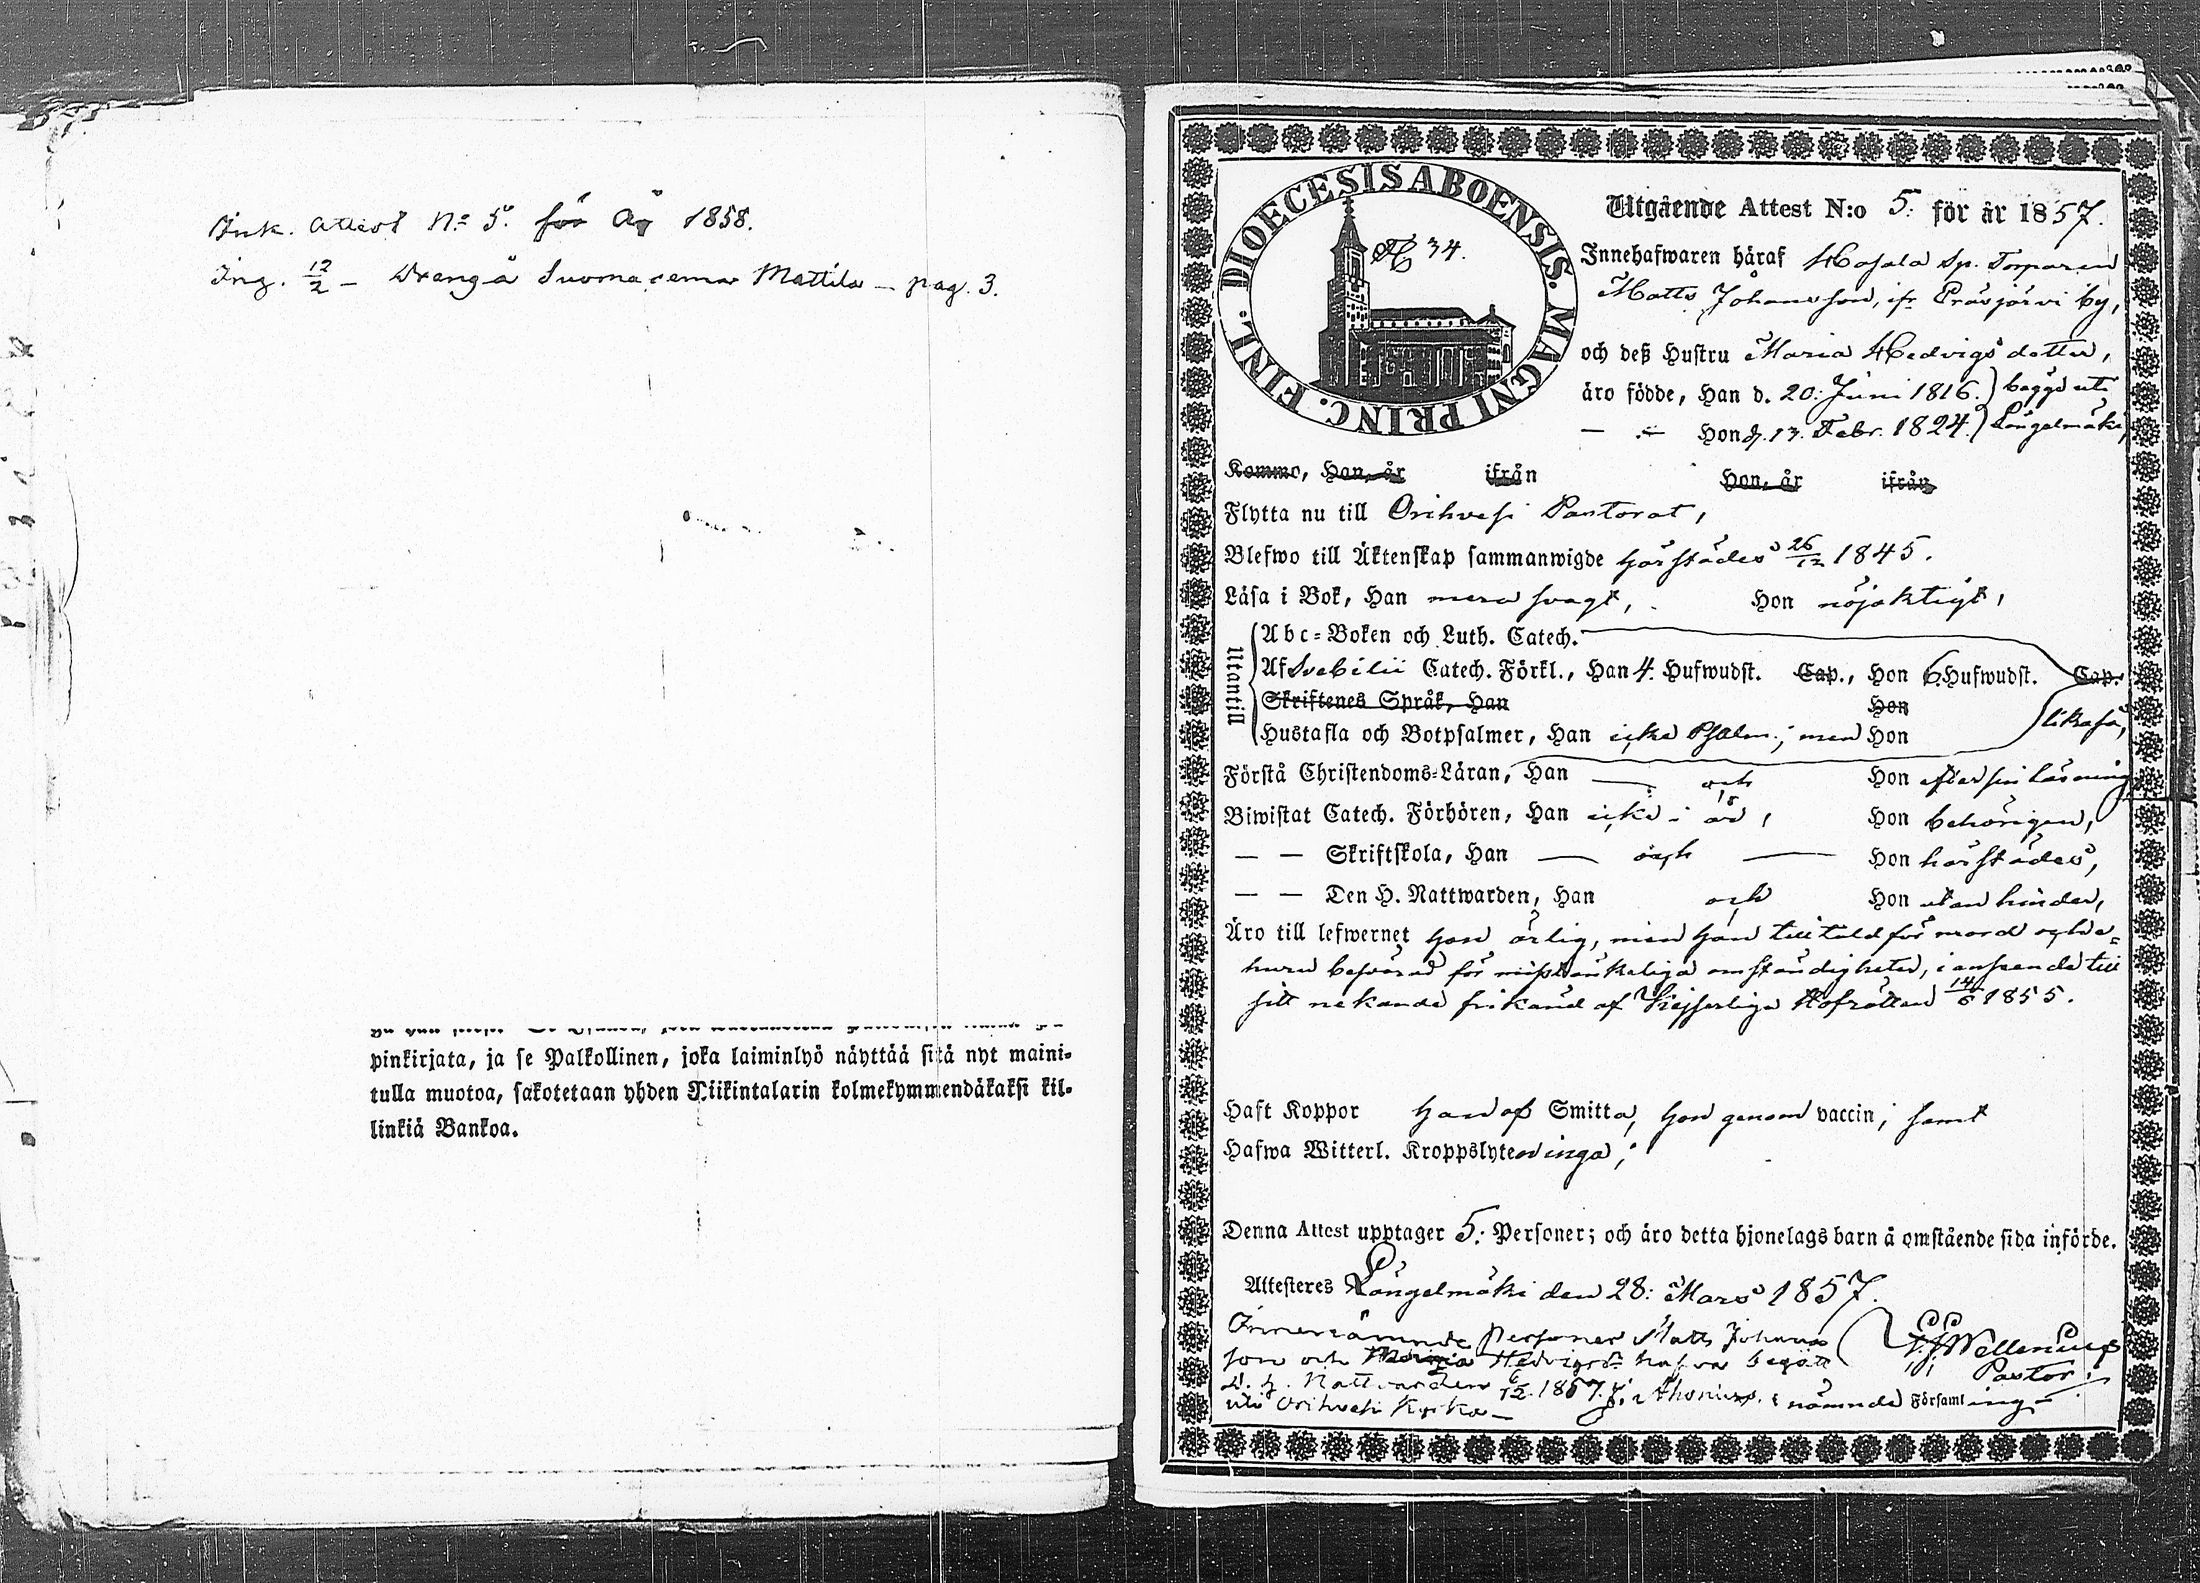 Ink. Attest N:o 5. för År 1858.
Ing. 12/2 – Dräng å Suomasema Mattila – pag. 3.
pinkirjata, ja se Palkollinen, joka laiminlyö näyttää sitä nyt maini-
tulla muotoa, sakotetaan yhden Riikintalarin kolmekymmendäkaksi kil-
linkiä Bankoa.
DIOECESIS ABOENSIS. MAGNI PRINC. FINL.
34.
Utgående Attest N:o 5. för år 1857.
Innehafwaren häraf Hosala Sp. Torparen
Matts Johansson, ifr. Präsjärvi by,
och deß Hustru Maria Hedvigsdotter,
äro födde, Han d. 20. Juni 1816.) begge uti
— " — Hon d. 13. Febr. 1824.) Längelmäki,
Komme, Han, år ifrån Hon, år ifrån
Flytta nu till Orihvesi Pastorat,
Blefwo till Äktenskap sammanwigde härstädes 26/12 1845.
Läsa i Bok, Han mera svagt, Hon nöjaktigt,
Utantill
Abc-Boken och Luth. Catech.
Af Svebilii Catech. Förkl., Han 4. Hufwudst. Cap., Hon 6. Hufwudst. Cap.
Skriftenes Språk, Han Hon
Hustafla och Botpsalmer, Han icke Psalm.; men Hon likaså,
Förstå Christendoms-Läran, Han — och Hon efter sin läsning
Biwistat Catech. Förhören, Han icke i år, Hon behörigen,
— — Skriftskola, Han — och — Hon härstädes,
— — Den H. Nattwarden, Han och Hon utan hinder,
Äro till lefwernet hon ärlig, men han tilltald för mord och e-
huru besvärad för misstänkeliga omständigheter, i anseende till
sitt nekande frikänd af Kejserliga Hofrätten 14/6 1855.
Haft Koppor Han af Smitta, hon genom vaccin; samt
Hafwa Witterl. Kroppslyten inga;
Denna Attest upptager 5. Personer; och äro detta hjonelags barn å omstående sida införde.
Attesteres Längelmäki den 28. Mars 1857.
Personer Matts Johans
son och Maria Hedvigsdr hafva begått
d. h. Nattvarden 6/12 1857.
uti Orihvesi Kyrka –
Pastor i nämnde Församling